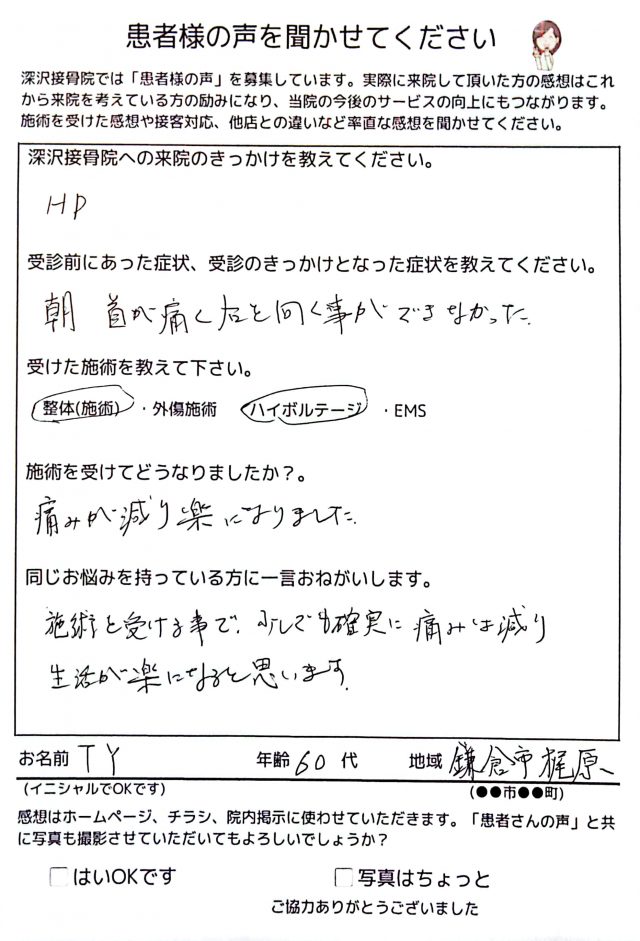 患者様の声を聞かせてください
深沢接骨院では「患者様の声」を募集しています。実際に来院して頂いた方の感想はこれ
から来院を考えている方の励みになり、当院の今後のサービスの向上にもつながります。
施術を受けた感想や接客対応、他店との違いなど率直な感想を聞かせてください。
深沢接骨院への来院のきっかけを教えてください。
HP
受診前にあった症状、受診のきっかけとなった症状を教えてください。
朝 首が痛く右を向く事ができなかった.
受けた施術を教えて下さい。
整体(施術) ・外傷施術 ハイボルテージ ・EMS
施術を受けてどうなりましたか？。
痛みが減り楽になりました.
同じお悩みを持っている方に一言おねがいします。
施術を受ける事で、少しでも確実に痛みは減り
生活が楽になると思います.
お名前 TY 年齢 60 代 地域 鎌倉市梶原
(イニシャルでOKです) (●●市●●町)
感想はホームページ、チラシ、院内掲示に使わせていただきます。「患者さんの声」と共
に写真も撮影させていただいてもよろしいでしょうか？
□はいOKです □写真はちょっと
ご協力ありがとうございました